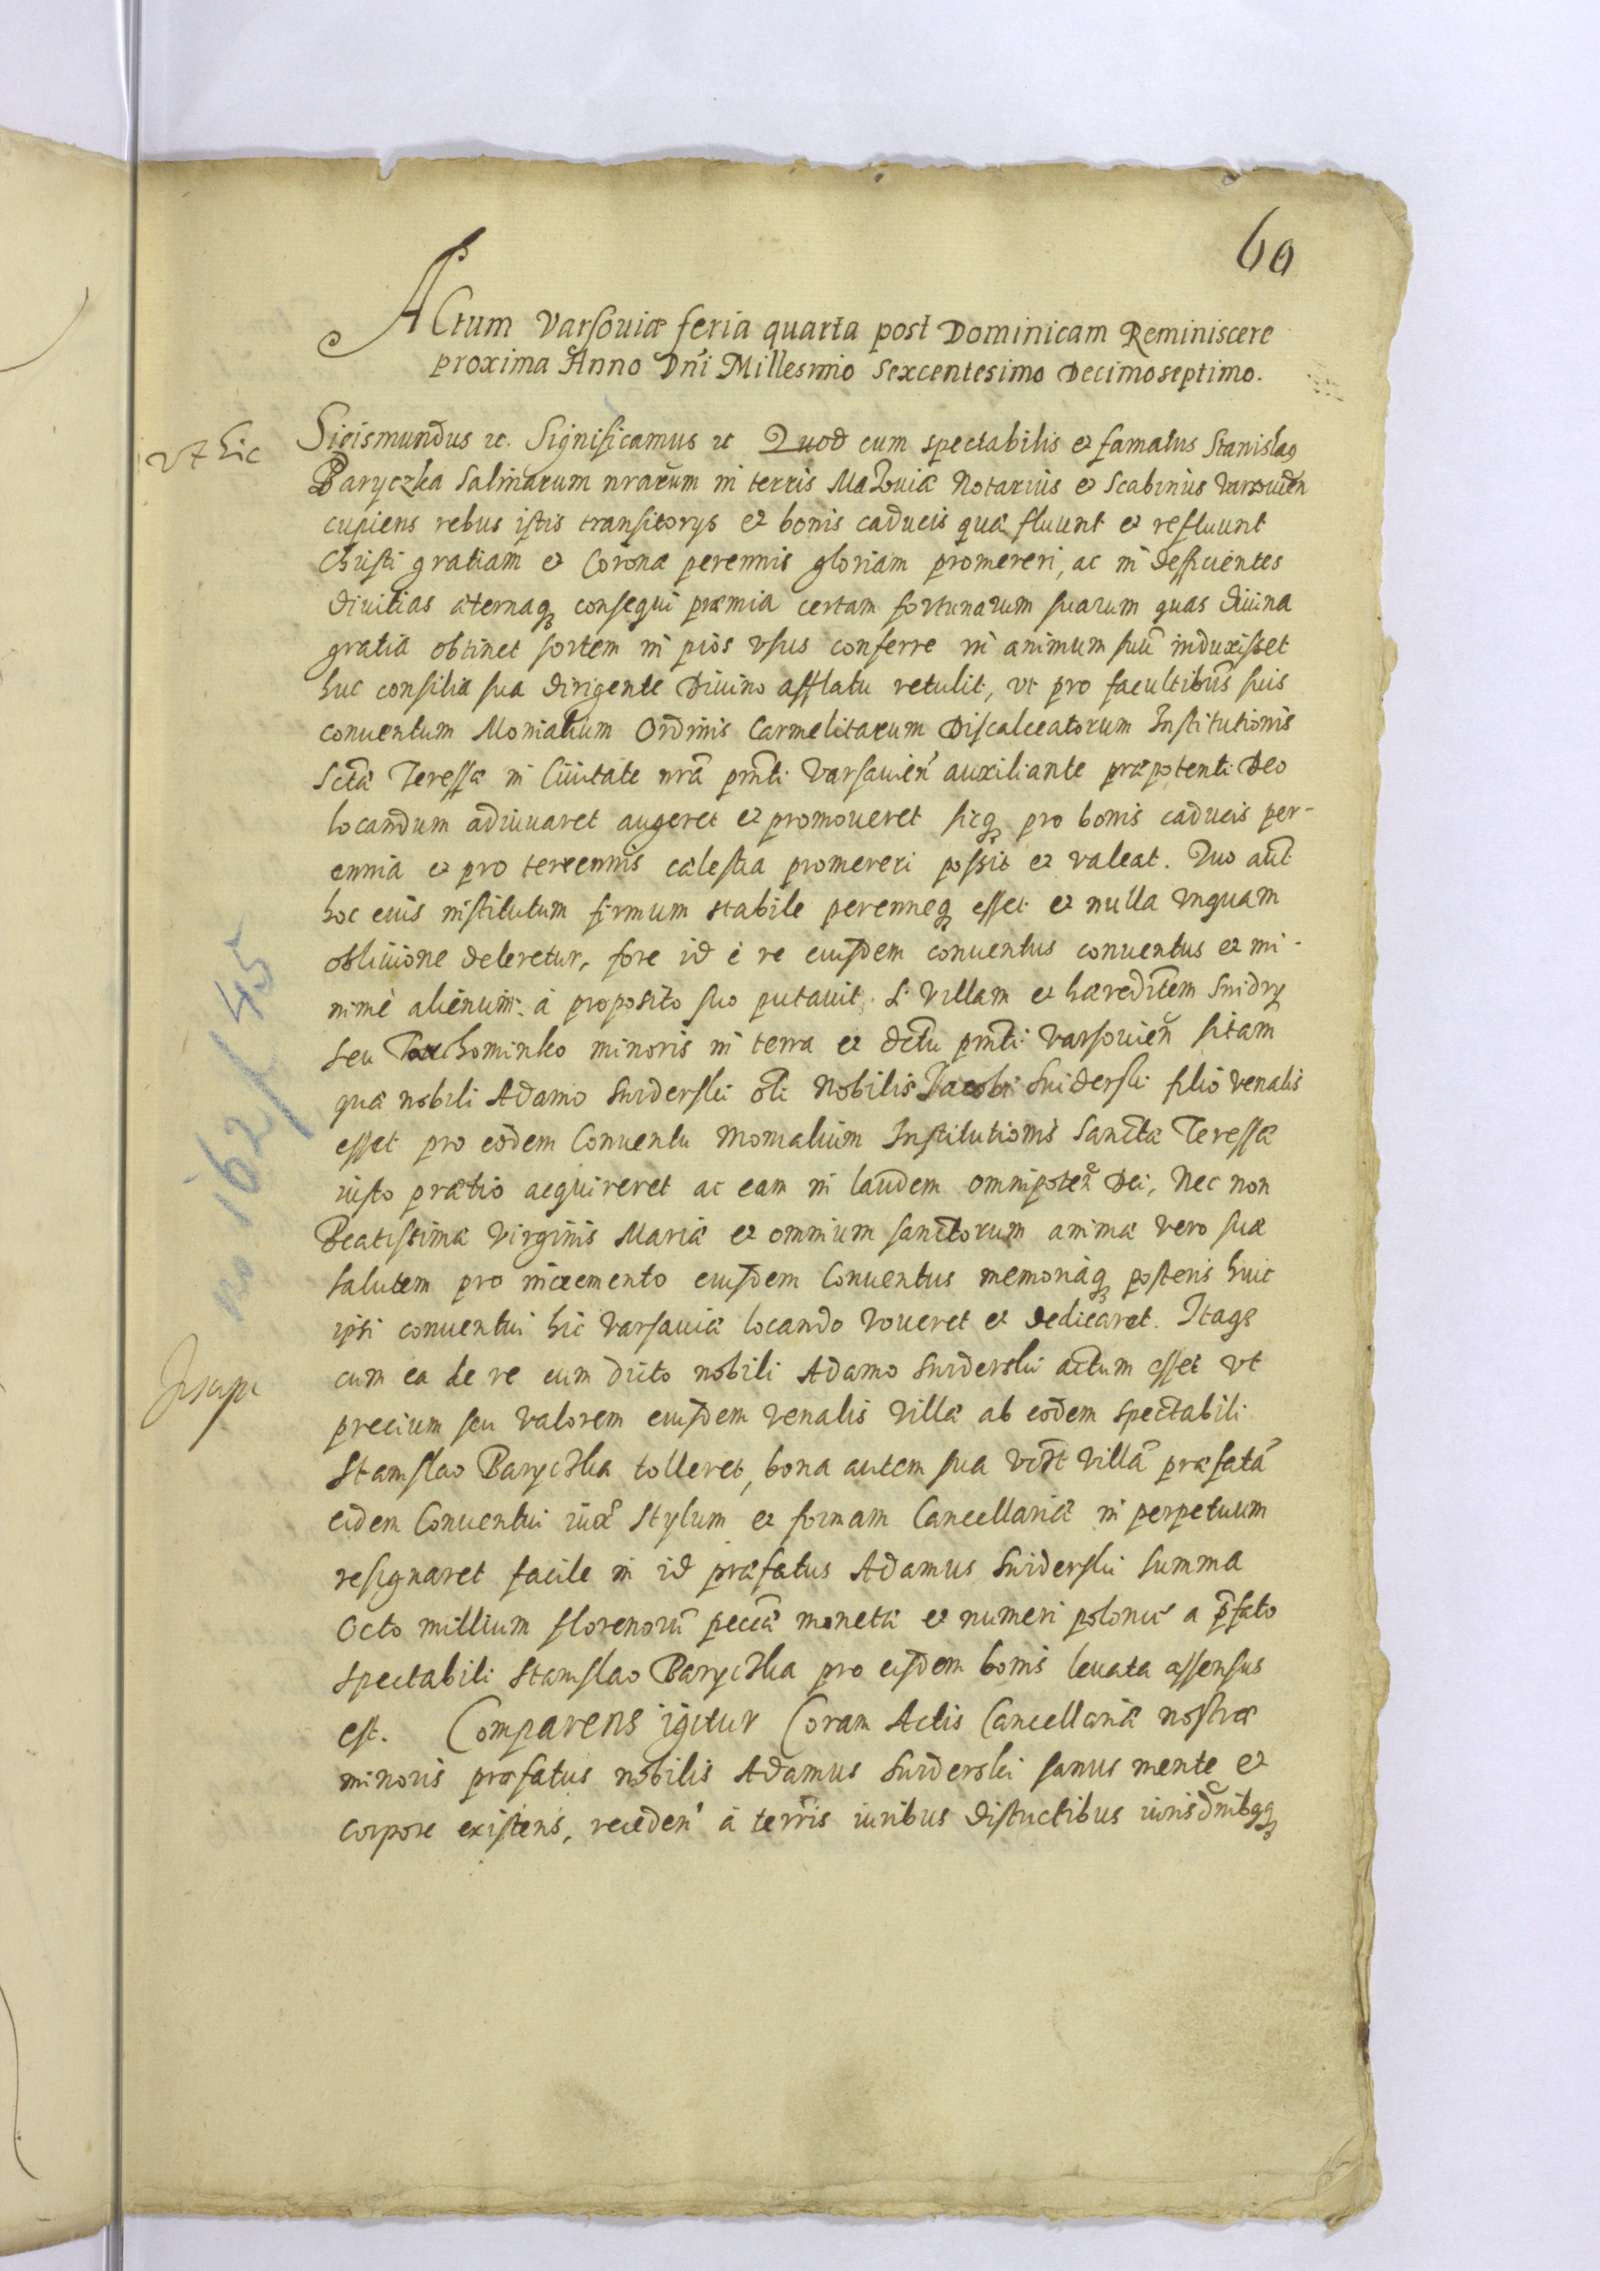 60
Actum Varsouiæ feria quarta post Dominicam Reminiscere
proxima Anno Dni Millesimo Sexcentesimo Decimoseptimo.
vt hic
Sigismundus etc. Significamus etc Quod cum spectabilis et famatus Stanislaus
Baryczka Salinarum nrarum in terris Mazouiæ Notarius et Scabinus Varsouien
cupiens rebus istis transitorys et bonis caducis quæ fluunt et refluunt
Christi gratiam et Coronæ perennis gloriam promereri, ac in defficientes
diuitias æternaq consequi præmia certam fortunarum suarum quas diuina
gratia obtinet sortem in pios vsus conferre in animum suū induxisset
huc consilia sua dirigente Diuino afflatu retulit, vt pro facultibūs suis
conuentum Monialium Ordinis Carmelitarum Discalceatorum Institutionis
Sctæ Teressæ in Ciuitate nrā pmti Varsauien auxiliante præpotenti Deo
locandum adiuuaret augeret et promoueret sicq pro bonis caducis per-
ennia et pro terrennis cælestia promereri possit et valeat. Quo aūt
hoc eius institutum firmum stabile perenneq esset et nulla vnquam
obliuione deleretur, fore id è re eiusdem conuentus conuentus et mi-
nimè alienum à proposito suo putauit, Si Villam et hæreditem Suidry
seu Tarchominko minoris in terra et dctu pmti Varsouien sitam
quæ nobili Adamo Suiderski oli Nobilis Jacobi Suiderski filio venalis
esset pro eodem Conuentu Monialium Institutionis Sanctæ Teressæ
iusto prætio acquireret ac eam in laudem omnipoten Dei, Nec non
Beatissimæ Virginis Mariæ et omnium sanctorum animæ vero suæ
salutem pro incremento eiusdem Conuentus memoriaq posteris huic
ipsi conuentui hic Varsauiæ locando voueret et dedicaret. Itaqe
cum ea de re cum dicto nobili Adamo Suiderski actum esset vt
precium seu valorem eiusdem venalis villæ ab eodem spectabili
Stanislao Baryczka tolleret, bona autem sua villā præfatā
eidem Conuentui iux Stylum et formam Cancellariæ in perpetuum
resignaret facile in id præfatus Adamus Suiderski summa
Octo millium florenorū pecciæ monetæ et numeri polonic a pfato
spectabili Stanislao Baryczka pro eisdem bonis leuata assensus
est. Comparens igitur Coram Actis Cancellariæ nostræ
minoris præfatus nobilis Adamus Suiderski sanus mente et
corpore existens, receden à terris iuribus districtibus iurisdnibqq
no 162/45